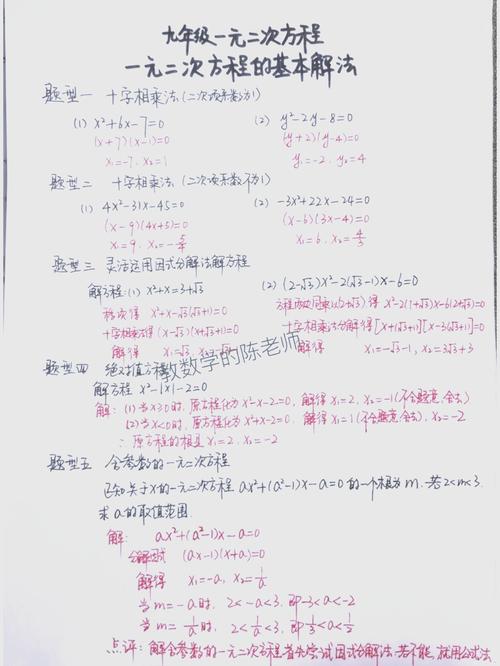 九年级一元二次方程
一元二次方程的基本解法
题型一 十字相乘法(二次项系数为1)
(1) x²+6x-7=0 (2) y²-2y-8=0
(x+7)(x-1)=0 (y+2)(y-4)=0
x₁=-7, x₂=1 y₁=-2, y₂=4
题型二 十字相乘法(二次项系数不为1)
(1) 4x²-31x-45=0 (2) -3x²+22x-24=0
(x-9)(4x+5)=0 (x-6)(3x-4)=0
x₁=9, x₂=-5/4 x₁=6, x₂=4/3
题型三 灵活运用因式分解法解方程
解方程:(1) x²+x=3+√3 (2) (2-√3)x²-2(√3-1)x-6=0
移项得 x²+x-√3(√3+1)=0 方程两边同乘以(2+√3)得 x²-2(1+√3)x-6(2+√3)=0
十字相乘法得(x-√3)(x+√3+1)=0 十字相乘法分解得[x+(√3+1)][x-3(√3+1)]=0
解得 x₁=√3, x₂=-√3-1 解得 x₁=-√3-1, x₂=3√3+3
教数学的陈老师
题型四 绝对值方程
解方程 x²-|x|-2=0
解: (1)当x≥0时,原方程化为x²-x-2=0,解得x₁=2, x₂=-1(不合题意,舍去)
(2)当x<0时,原方程化为x²+x-2=0,解得x₁=1(不合题意,舍去), x₂=-2
∴原方程的根是x₁=2, x₂=-2
题型五 含参数的一元二次方程
已知关于x的一元二次方程ax²+(a²-1)x-a=0的一个根为m.若2<m<3.
求a的取值范围.
解: ax²+(a²-1)x-a=0
分解因式 (ax-1)(x+a)=0
解得 x₁=-a, x₂=1/a
当m=-a时, 2<-a<3,即-3<a<-2
当m=1/a时, 2<1/a<3,即1/3<a<1/2
点评:解含参数的一元二次方程首先尝试因式分解法,若不能,就用公式法